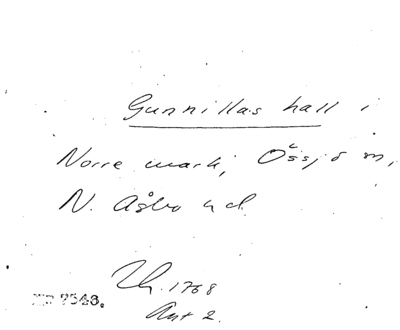 Gunnillas hall i
Norre mark, Össjö sn,
N. Åsbo hd.
Th. 1768
Ant 2.
7548.